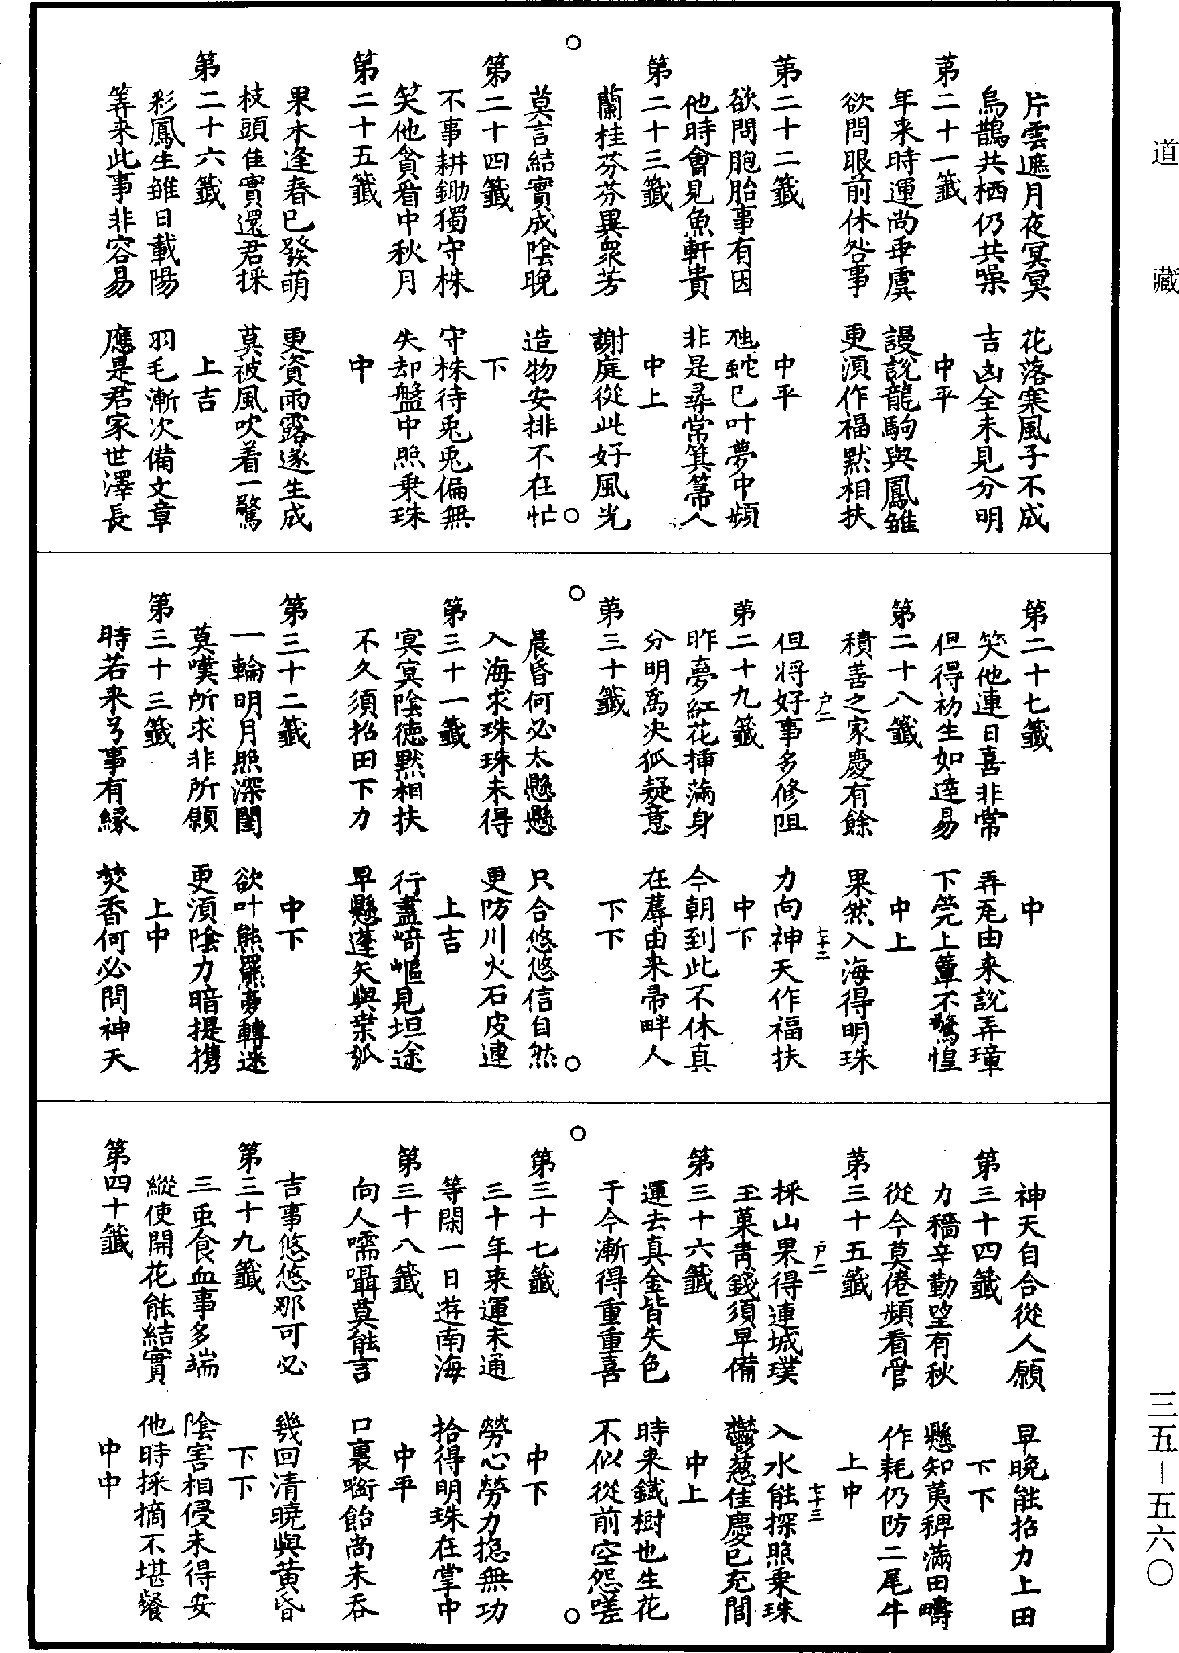 道藏
片雲遮月夜冥冥　花落寒風子不成
烏鵲共栖仍共噪　吉凶全未見分明
第二十一籤　中平
年來時運尚乖虞　謾說龍駒與鳳雛
欲問眼前休咎事　更須作福默相扶
第二十二籤　中平
欲問胞胎事有因　虺蛇已叶夢中頻
他時會見魚軒貴　非是尋常箕箒人
第二十三籤　中上
蘭桂芬芬異衆芳　謝庭從此好風光
莫言結實成陰晚　造物安排不在忙
第二十四籤　下
不事耕鋤獨守株　守株待兎兎偏無
笑他貪看中秋月　失却盤中照乘珠
第二十五籤　中
果木逢春已發萌　更資雨露遂生成
枝頭佳實還君採　莫被風吹着一驚
第二十六籤　上吉
彩鳳生雛日載陽　羽毛漸次備文章
筭来此事非容易　應是君家世澤長
第二十七籤　中
笑他連日喜非常　弄瓦由来說弄璋
但得初生如達易　下莞上簟不驚惶
第二十八籤　中上
積善之家慶有餘　果然入海得明珠
戶二　七十二
但將好事多修阻　力向神天作福扶
第二十九籤　中下
昨夢紅花挿滿身　今朝到此不休真
分明爲决狐疑意　在蓐由来帚畔人
第三十籤　下下
晨昏何必太懸懸　只合悠悠信自然
入海求珠珠未得　更防川火石皮連
第三十一籤　上吉
冥冥陰德默相扶　行盡崎嶇見坦途
不久須招田下力　早懸蓬矢與桒弧
第三十二籤　中下
一輪明月照深閨　欲叶熊羆夢轉迷
莫嘆所求非所願　更須陰力暗提携
第三十三籤　上中
時若来兮事有緣　焚香何必問神天
神天自合從人願　早晚能招力上田
第三十四籤　下下
力穡辛勤望有秋　懸知荑稗滿田疇
從今莫倦頻看管　作耗仍防二尾牛
第三十五籤　上中
採山果得連城璞　入水能探照乘珠
戶二　七十三
玉菓青錢須早備　鬱葱佳慶已充閭
第三十六籤　中上
運去真金皆失色　時来鐵樹也生花
于今漸得重重喜　不似從前空怨嗟
第三十七籤　中下
三十年來運未通　勞心勞力揔無功
等閑一日遊南海　拾得明珠在掌中
第三十八籤　中平
向人嚅囁莫能言　口裏啣飴尚未吞
吉事悠悠那可必　幾回清曉與黃昏
第三十九籤　下下
三䖝食血事多端　陰害相侵未得安
縱使開花能結實　他時採摘不堪餐
第四十籤　中中
三五－五六〇